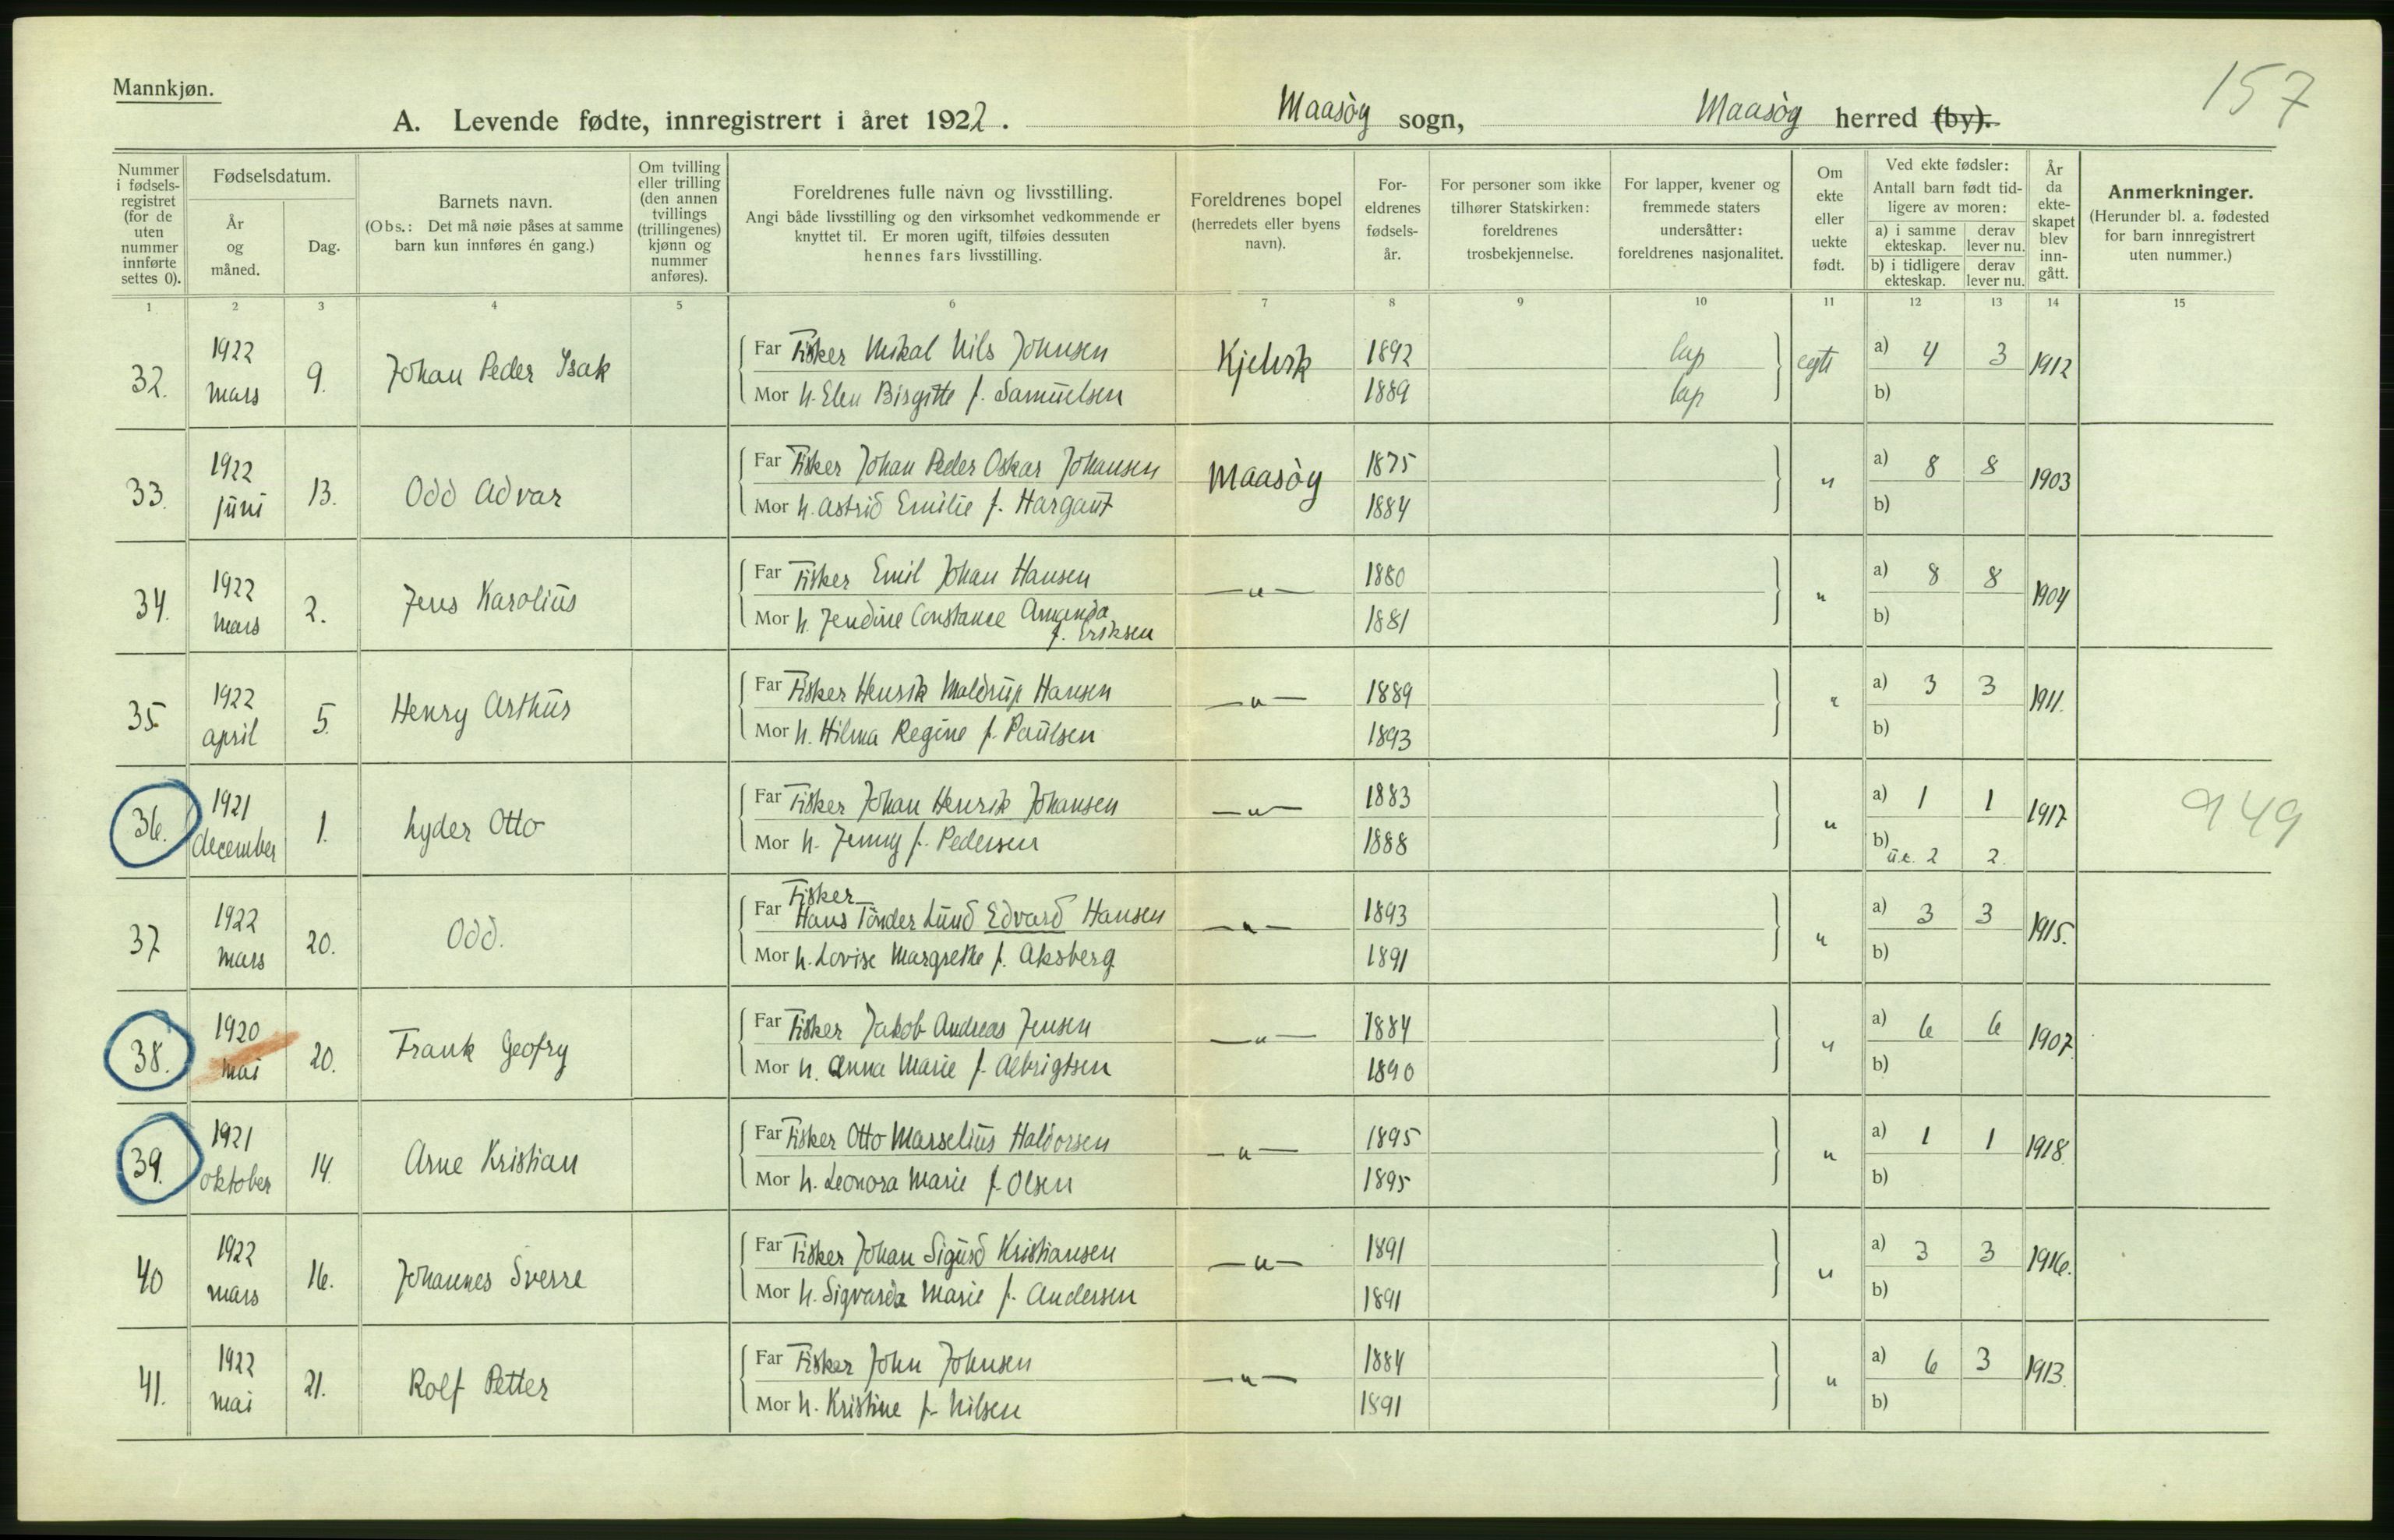 157
Mannkjøn.
A. Levende fødte, innregistrert i året 1922. Maasøy sogn, Maasøy herred (by).
Nummer i fødsels-registret (for de uten nummer innførte settes 0).
Fødselsdatum.
År og måned.
Dag.
Barnets navn.
(Obs.: Det må nøie påses at samme barn kun innføres én gang.)
Om tvilling eller trilling (den annen tvillings (trillingenes) kjønn og nummer anføres).
Foreldrenes fulle navn og livsstilling.
Angi både livsstilling og den virksomhet vedkommende er knyttet til. Er moren ugift, tilføies dessuten hennes fars livsstilling.
Foreldrenes bopel (herredets eller byens navn).
For-eldrenes fødsels-år.
For personer som ikke tilhører Statskirken: foreldrenes trosbekjennelse.
For lapper, kvener og fremmede staters undersåtter: foreldrenes nasjonalitet.
Om ekte eller uekte født.
Ved ekte fødsler:
Antall barn født tid-ligere av moren:
a) i samme ekteskap. derav lever nu.
b) i tidligere ekteskap. derav lever nu.
År da ekte-skapet blev inn-gått.
Anmerkninger.
(Herunder bl. a. fødested for barn innregistrert uten nummer.)
1 2 3 4 5 6 7 8 9 10 11 12 13 14 15
32. 1922 mars 9. Johan Peder Isak
Far Fisker Mikal Nils Johnsen Kjelvik 1892 lap egte a) 4 3 1912
Mor h. Elen Birgitte f. Samuelsen 1889 lap b)
33. 1922 juni 13. Odd Advar
Far Fisker Johan Peder Oskar Johansen Maasøy 1875 " a) 8 8 1903
Mor h. Astrid Emilie f. Hargaut 1884 b)
34. 1922 mars 2. Jens Karolius
Far Fisker Emil Johan Hansen —"— 1880 " a) 8 8 1904
Mor h. Jendine Constance Amanda f. Eriksen 1881 b)
35 1922 april 5. Henry Arthur
Far Fisker Henrik Maldrup Hansen —"— 1889 " a) 3 3 1911.
Mor h. Hilma Regine f. Paulsen 1893 b)
36. 1921 december 1. Lyder Otto
Far Fisker Johan Henrik Johansen —"— 1883 " a) 1 1 1917 949
Mor h. Jenny f. Pedersen 1888 b) u.e. 2 2.
37 1922 mars 20. Odd.
Far Fisker Hans Tønder Lund Edvard Hansen —"— 1893 " a) 3 3 1915.
Mor h. Lovise Margrethe f. Aksberg 1891 b)
38. 1920 mai 20. Frank Geofry
Far Fisker Jakob Andreas Jensen —"— 1884 " a) 6 6 1907.
Mor h. Anna Marie f. Albrigtsen 1890 b)
39. 1921 oktober 14. Arne Kristian
Far Fisker Otto Marselius Haldorsen —"— 1895 " a) 1 1 1918.
Mor h. Leonora Marie f. Olsen 1895 b)
40 1922 mars 16. Johannes Sverre
Far Fisker Johan Sigurd Kristiansen —"— 1891 " a) 3 3 1916.
Mor h. Sigvarda Marie f. Andersen 1891 b)
41. 1922 mai 21. Rolf Petter
Far Fisker John Johnsen —"— 1884 " a) 6 3 1913.
Mor h. Kristine f. Nilsen 1891 b)